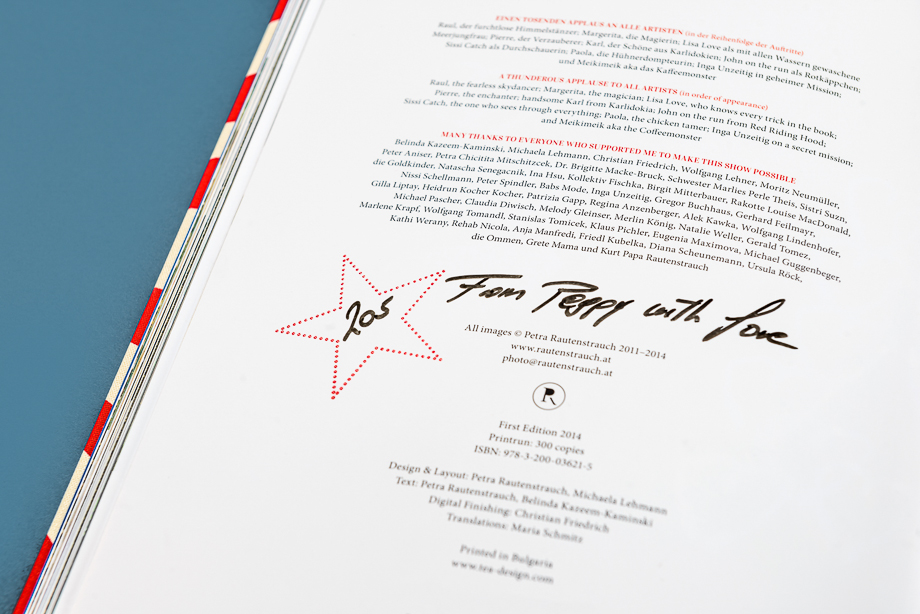 EINEN TOSENDEN APPLAUS AN ALLE ARTISTEN (in der Reihenfolge der Auftritte)
Raul, der furchtlose Himmelstänzer; Margerita, die Magierin; Lisa Love als mit allen Wassern gewaschene
Meerjungfrau; Pierre, der Verzauberer; Karl, der Schöne aus Karlidokien; John on the run als Rotkäppchen;
Sissi Catch als Durchschauerin; Paola, die Hühnerdompteurin; Inga Unzeitig in geheimer Mission;
und Meikimeik aka das Kaffeemonster
A THUNDEROUS APPLAUSE TO ALL ARTISTS (in order of appearance)
Raul, the fearless skydancer; Margerita, the magician; Lisa Love, who knows every trick in the book;
Pierre, the enchanter; handsome Karl from Karlidokia; John on the run from Red Riding Hood;
Sissi Catch, the one who sees through everything; Paola, the chicken tamer; Inga Unzeitig on a secret mission;
and Meikimeik aka the Coffeemonster
MANY THANKS TO EVERYONE WHO SUPPORTED ME TO MAKE THIS SHOW POSSIBLE
Belinda Kazeem-Kaminski, Michaela Lehmann, Christian Friedrich, Wolfgang Lehner, Moritz Neumüller,
Peter Aniser, Petra Chicitita Mitschitzcek, Dr. Brigitte Macke-Bruck, Schwester Marlies Perle Theis, Sistri Suzn,
die Goldkinder, Natascha Senegacnik, Ina Hsu, Kollektiv Fischka, Birgit Mitterbauer, Rakotte Louise MacDonald,
Nissi Schellmann, Peter Spindler, Babs Mode, Inga Unzeitig, Gregor Buchhaus, Gerhard Feilmayr,
Gilla Liptay, Heidrun Kocher Kocher, Patrizia Gapp, Regina Anzenberger, Alek Kawka, Wolfgang Lindenhofer,
Michael Pascher, Claudia Diwisch, Melody Gleinser, Merlin König, Natalie Weller, Gerald Tomez,
Marlene Krapf, Wolfgang Tomandl, Stanislas Tomicek, Klaus Pichler, Eugenia Maximova, Michael Guggenbeger,
Kathi Werany, Rehab Nicola, Anja Manfredi, Friedl Kubelka, Diana Scheunemann, Ursula Röck,
die Ommen, Grete Mama und Kurt Papa Rautenstrauch
205
From Peppy with Love
All images © Petra Rautenstrauch 2011–2014
www.rautenstrauch.at
photo@rautenstrauch.at
R
First Edition 2014
Printrun: 300 copies
ISBN: 978-3-200-03621-5
Design & Layout: Petra Rautenstrauch, Michaela Lehmann
Text: Petra Rautenstrauch, Belinda Kazeem-Kaminski
Digital Finishing: Christian Friedrich
Translations: Maria Schmitz
Printed in Bulgaria
www.tea-design.com